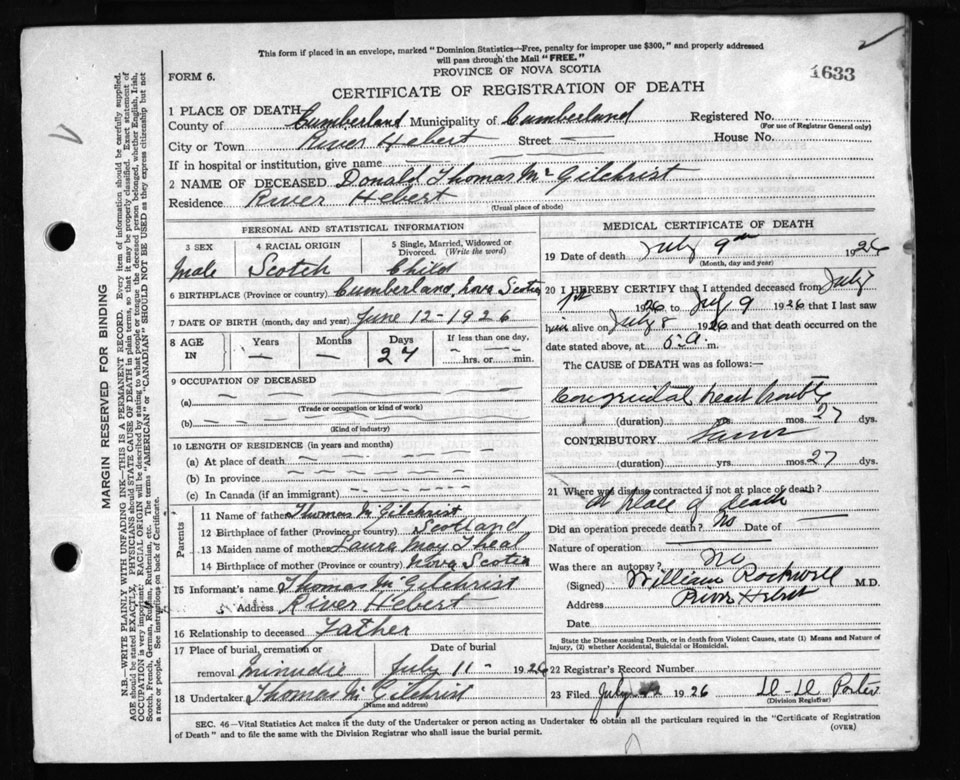 This form if placed in an envelope, marked "Dominion Statistics—Free, penalty for improper use $300," and properly addressed
will pass through the Mail "FREE."
FORM 6.
PROVINCE OF NOVA SCOTIA
1633
CERTIFICATE OF REGISTRATION OF DEATH
1 PLACE OF DEATH
County of Cumberland Municipality of Cumberland Registered No.
(For use of Registrar General only)
City or Town River Hebert Street House No.
If in hospital or institution, give name
2 NAME OF DECEASED Donald Thomas Mc Gilchrist
Residence River Hebert
(Usual place of abode)
PERSONAL AND STATISTICAL INFORMATION
3 SEX 4 RACIAL ORIGIN 5 Single, Married, Widowed or
Divorced. (Write the word)
Male Scotch Child
6 BIRTHPLACE (Province or country) Cumberland, Nova Scotia
7 DATE OF BIRTH (month, day and year) June 12-1926
8 AGE IN Years Months Days If less than one day,
— — 27 hrs. or min.
9 OCCUPATION OF DECEASED
(a)
(Trade or occupation or kind of work)
(b)
(Kind of industry)
10 LENGTH OF RESIDENCE (in years and months)
(a) At place of death
(b) In province
(c) In Canada (if an immigrant)
Parents
11 Name of father Thomas Mc Gilchrist
12 Birthplace of father (Province or country) Scotland
13 Maiden name of mother Laura May Theal
14 Birthplace of mother (Province or country) Nova Scotia
15 Informant's name Thomas Mc Gilchrist
Address River Hebert
16 Relationship to deceased Father
17 Place of burial, cremation or Date of burial
removal Minudie July 11- 1926
18 Undertaker Thomas Mc Gilchrist
(Name and address)
MEDICAL CERTIFICATE OF DEATH
19 Date of death July 9th 1926
(Month, day and year)
20 I HEREBY CERTIFY that I attended deceased from July
1st 1926 to July 9 1926 that I last saw
him alive on July 8 1926 and that death occurred on the
date stated above, at 5 a. m.
The CAUSE of DEATH was as follows:—
Congenital heart trouble
(duration) yrs. mos 27 dys.
CONTRIBUTORY Same
(duration) yrs. mos 27 dys.
21 Where was disease contracted if not at place of death?
At place of death
Did an operation precede death? No Date of —
Nature of operation
Was there an autopsy? No
(Signed) William Rockwell M.D.
Address River Hebert
Date
State the Disease causing Death, or in death from Violent Causes, state (1) Means and Nature of
Injury, (2) whether Accidental, Suicidal or Homicidal.
22 Registrar's Record Number
23 Filed July 1926 Porter
(Division Registrar)
SEC. 46—Vital Statistics Act makes it the duty of the Undertaker or person acting as Undertaker to obtain all the particulars required in the "Certificate of Registration
of Death" and to file the same with the Division Registrar who shall issue the burial permit.
(OVER)
MARGIN RESERVED FOR BINDING
N.B.—WRITE PLAINLY WITH UNFADING INK—THIS IS A PERMANENT RECORD. Every item of information should be carefully supplied.
AGE should be stated EXACTLY. PHYSICIANS should STATE CAUSE OF DEATH in plain terms, so that it may be properly classified. Exact statement of
OCCUPATION is very important. RACIAL ORIGIN will be described by stating to what people or tongue the deceased person belonged, whether English, Irish,
Scotch, French, German, Russian, Ruthenian, etc. The terms "AMERICAN" or "CANADIAN" SHOULD NOT BE USED as they express citizenship but not
a race or people. See instructions on back of Certificate.